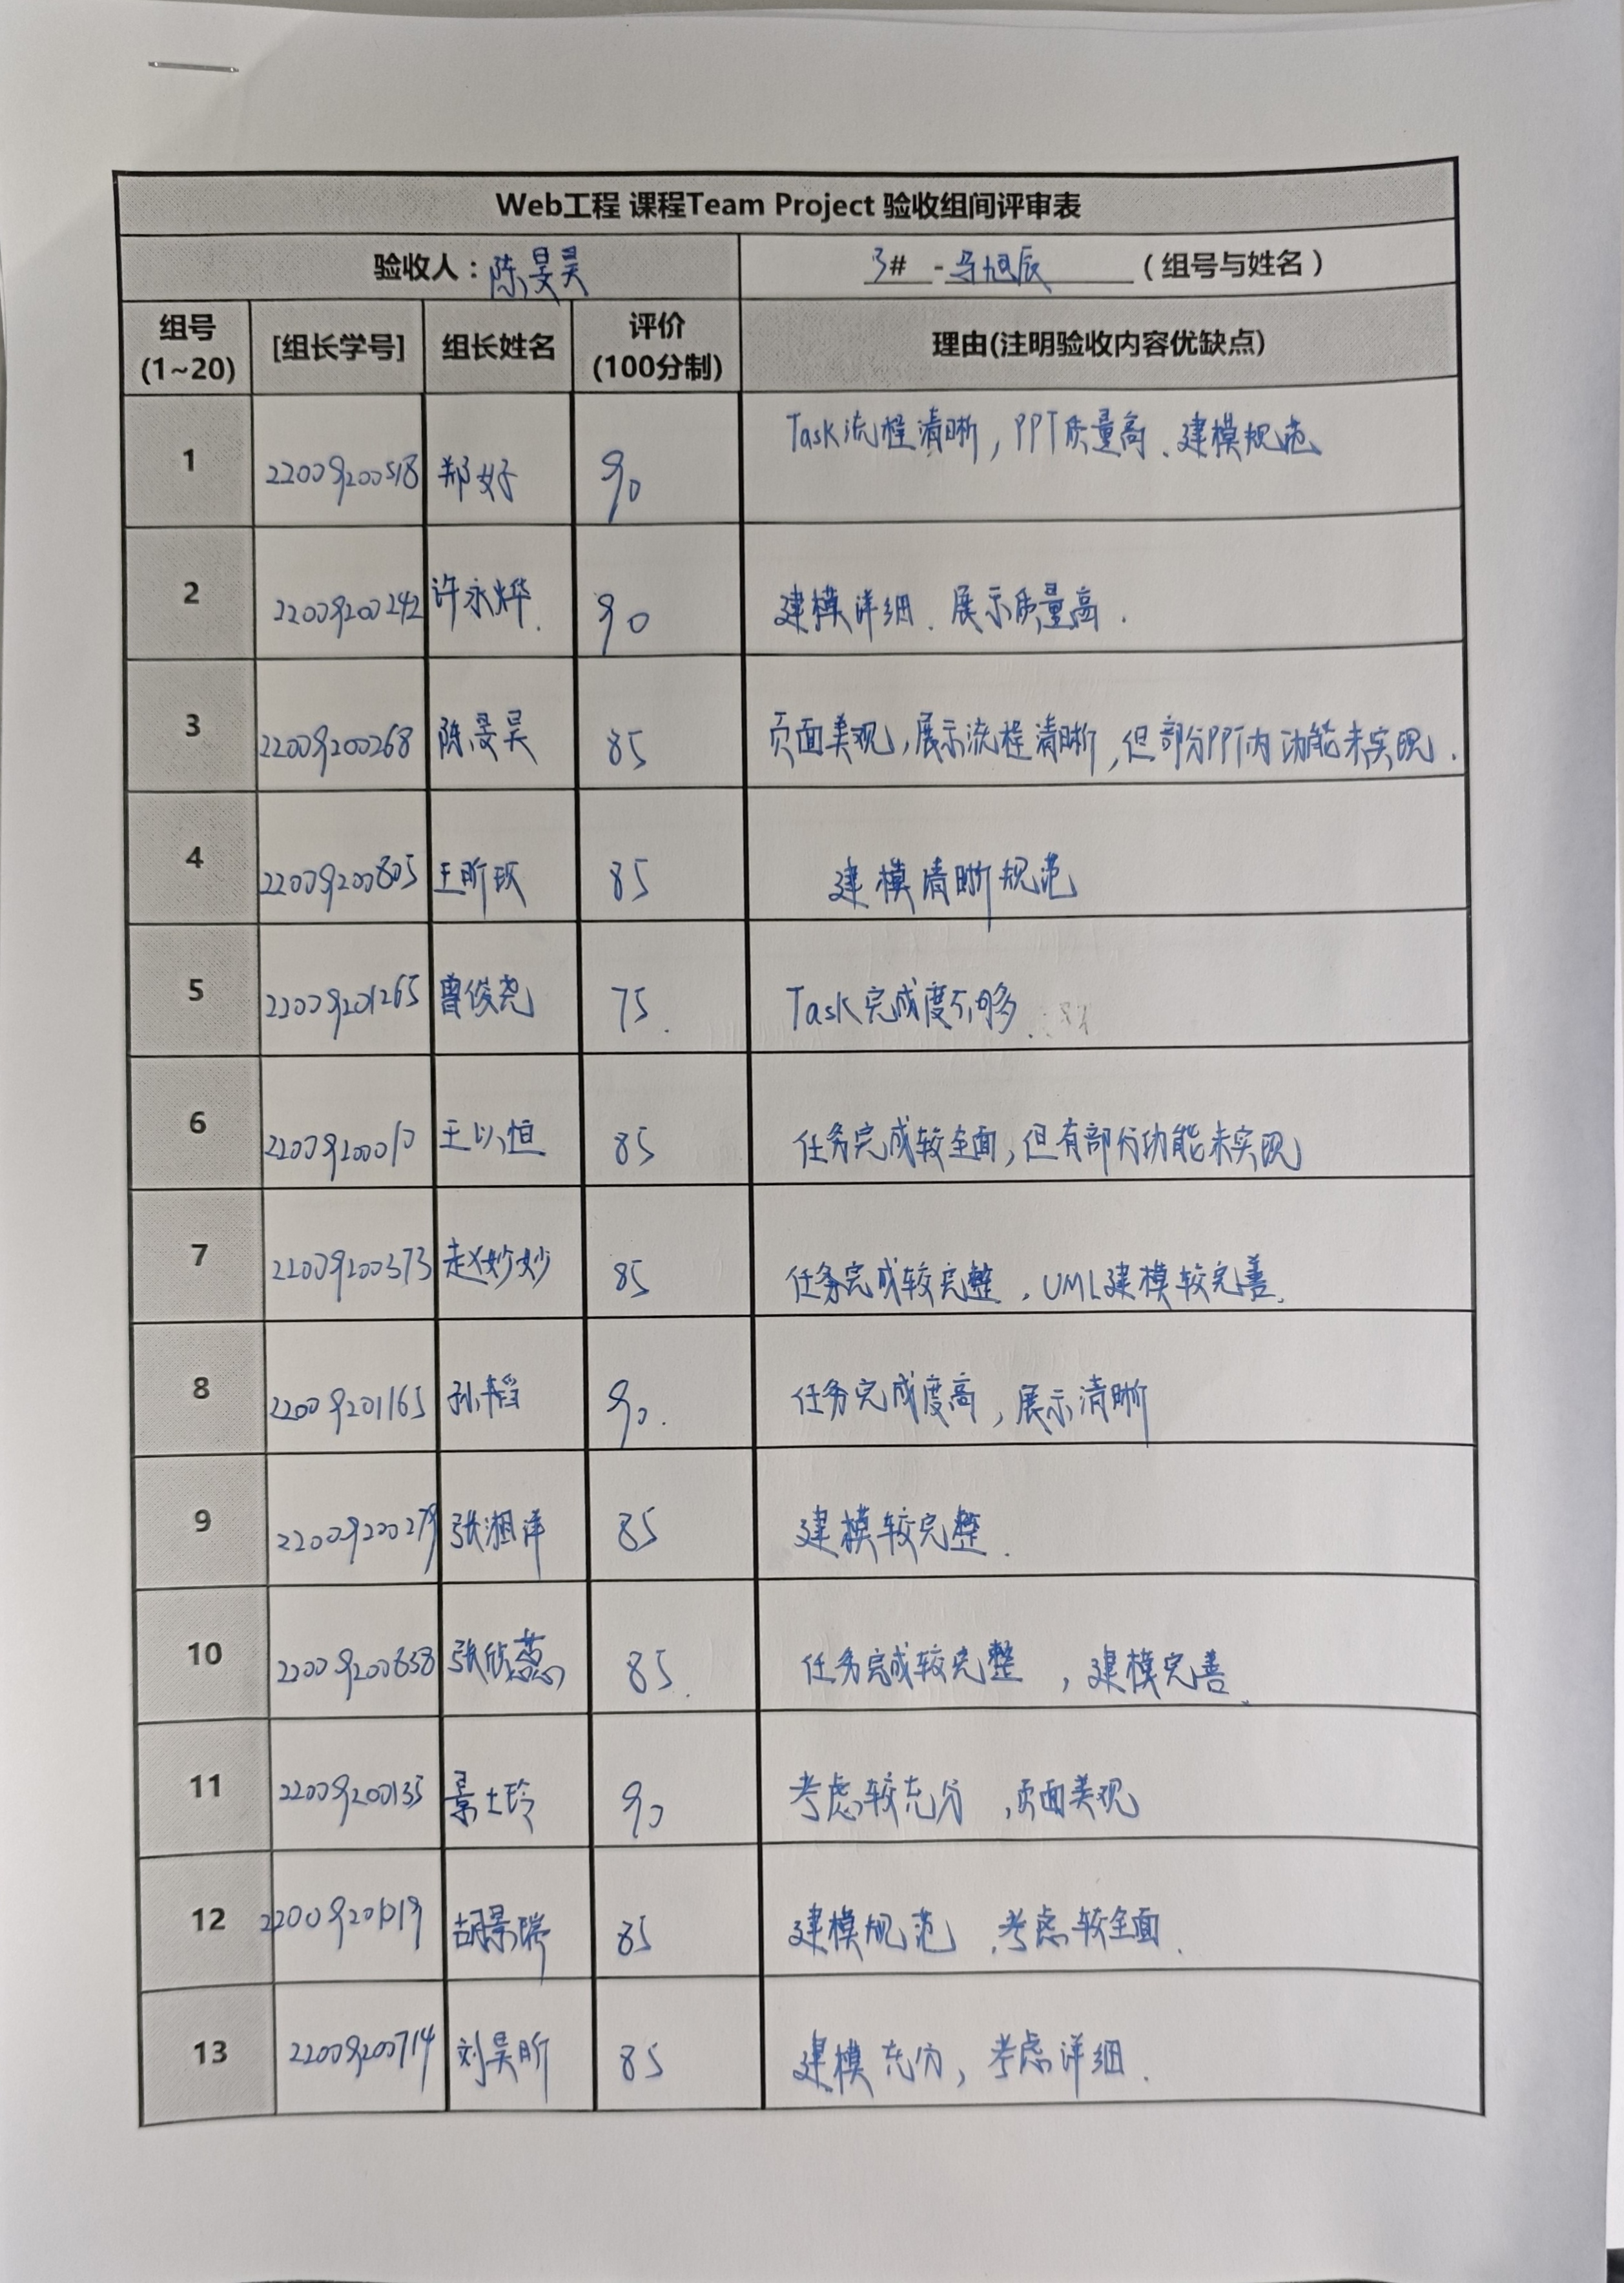 Web工程 课程Team Project 验收组间评审表
验收人：陈旻昊 3# - 马旭辰 （组号与姓名）
组号 (1~20) [组长学号] 组长姓名 评价 (100分制) 理由(注明验收内容优缺点)
1 22009200518 郑好 90 Task流程清晰，PPT质量高、建模规范
2 22009200242 许永烨. 90 建模详细、展示质量高.
3 22009200268 陈旻昊 85 页面美观，展示流程清晰，但部分PPT内功能未实现.
4 22009200805 王昕玫 85 建模清晰规范
5 22009201265 曾俊尧 75. Task完成度不够.
6 22009200010 王以恒 85 任务完成较全面，但有部分功能未实现
7 22009200373 赵妙妙 85 任务完成较完整，UML建模较完善.
8 22009201165 孙韬 90. 任务完成度高，展示清晰
9 22009200279 张湘洋 85 建模较完整.
10 22009200838 张欣蕊 85. 任务完成较完整，建模完善.
11 22009200135 景士玲 90 考虑较充分，页面美观
12 22009201019 胡景瑞 85 建模规范、考虑较全面.
13 22009200714 刘昊昕 85 建模充分，考虑详细.